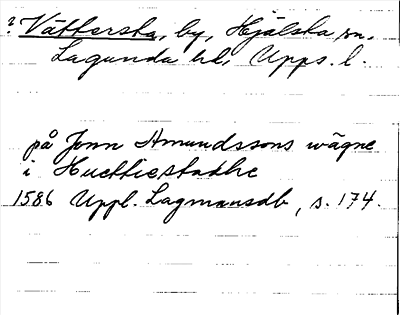 ? Vättersta, by, Hjälsta sn,
Lagunda hd, Upps. l.
på Jonn Amundssons wägne
i Huettiestadhe
1586 Uppl. Lagmansdb, s. 174.